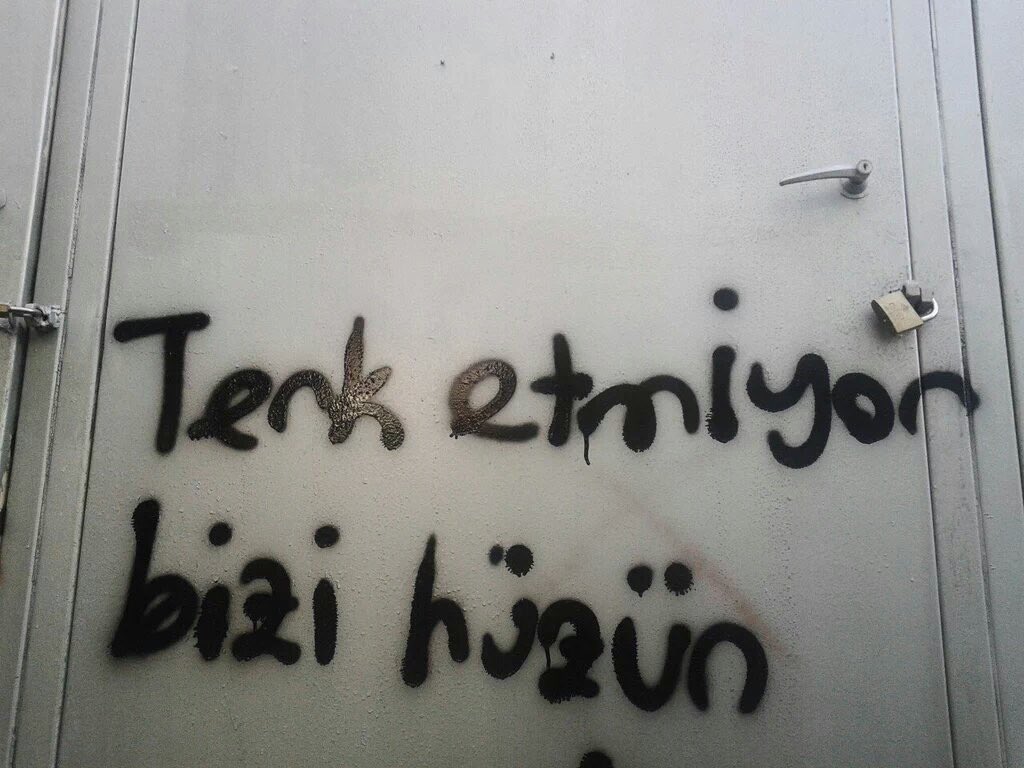 Terk etmiyor
bizi hüzün